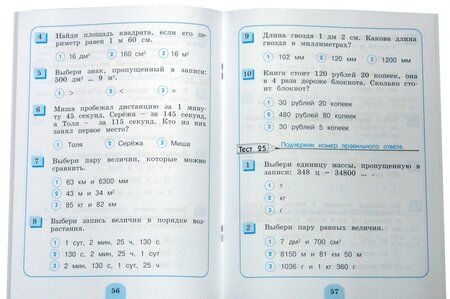 4 Найди площадь квадрата, если его пе-
риметр равен 1 м 60 см.
1 16 дм² 2 160 см² 3 16 м²
5 Выбери знак, пропущенный в записи:
500 дм² ... 9 м².
1 > 2 < 3 =
6 Миша пробежал дистанцию за 1 мину-
ту 45 секунд, Серёжа – за 145 секунд,
а Толя – за 115 секунд. Кто из них
занял первое место?
1 Толя 2 Серёжа 3 Миша
7 Выбери пару величин, которые можно
сравнить.
1 63 км и 6300 мм
2 43 м и 34 м²
3 85 кг и 82 км
8 Выбери запись величин в порядке воз-
растания.
1 1 сут, 2 мин, 25 ч, 130 с
2 130 с, 2 мин, 25 ч, 1 сут
3 2 мин, 130 с, 1 сут, 25 ч
56
9 Длина гвоздя 1 дм 2 см. Какова длина
гвоздя в миллиметрах?
1 102 мм 2 120 мм 3 1200 мм
10 Книга стоит 120 рублей 20 копеек, она
в 4 раза дороже блокнота. Сколько сто-
ит блокнот?
1 30 рублей 20 копеек
2 480 рублей 80 копеек
3 30 рублей 5 копеек
Тест 25 Подчеркни номер правильного ответа.
1 Выбери единицу массы, пропущенную в
записи: 348 ц = 34800 ... .
1 т
2 кг
3 г
2 Выбери пару равных величин.
1 7 дм² и 700 см²
2 8150 м и 81 км 50 м
3 1036 г и 1 кг 360 г
57